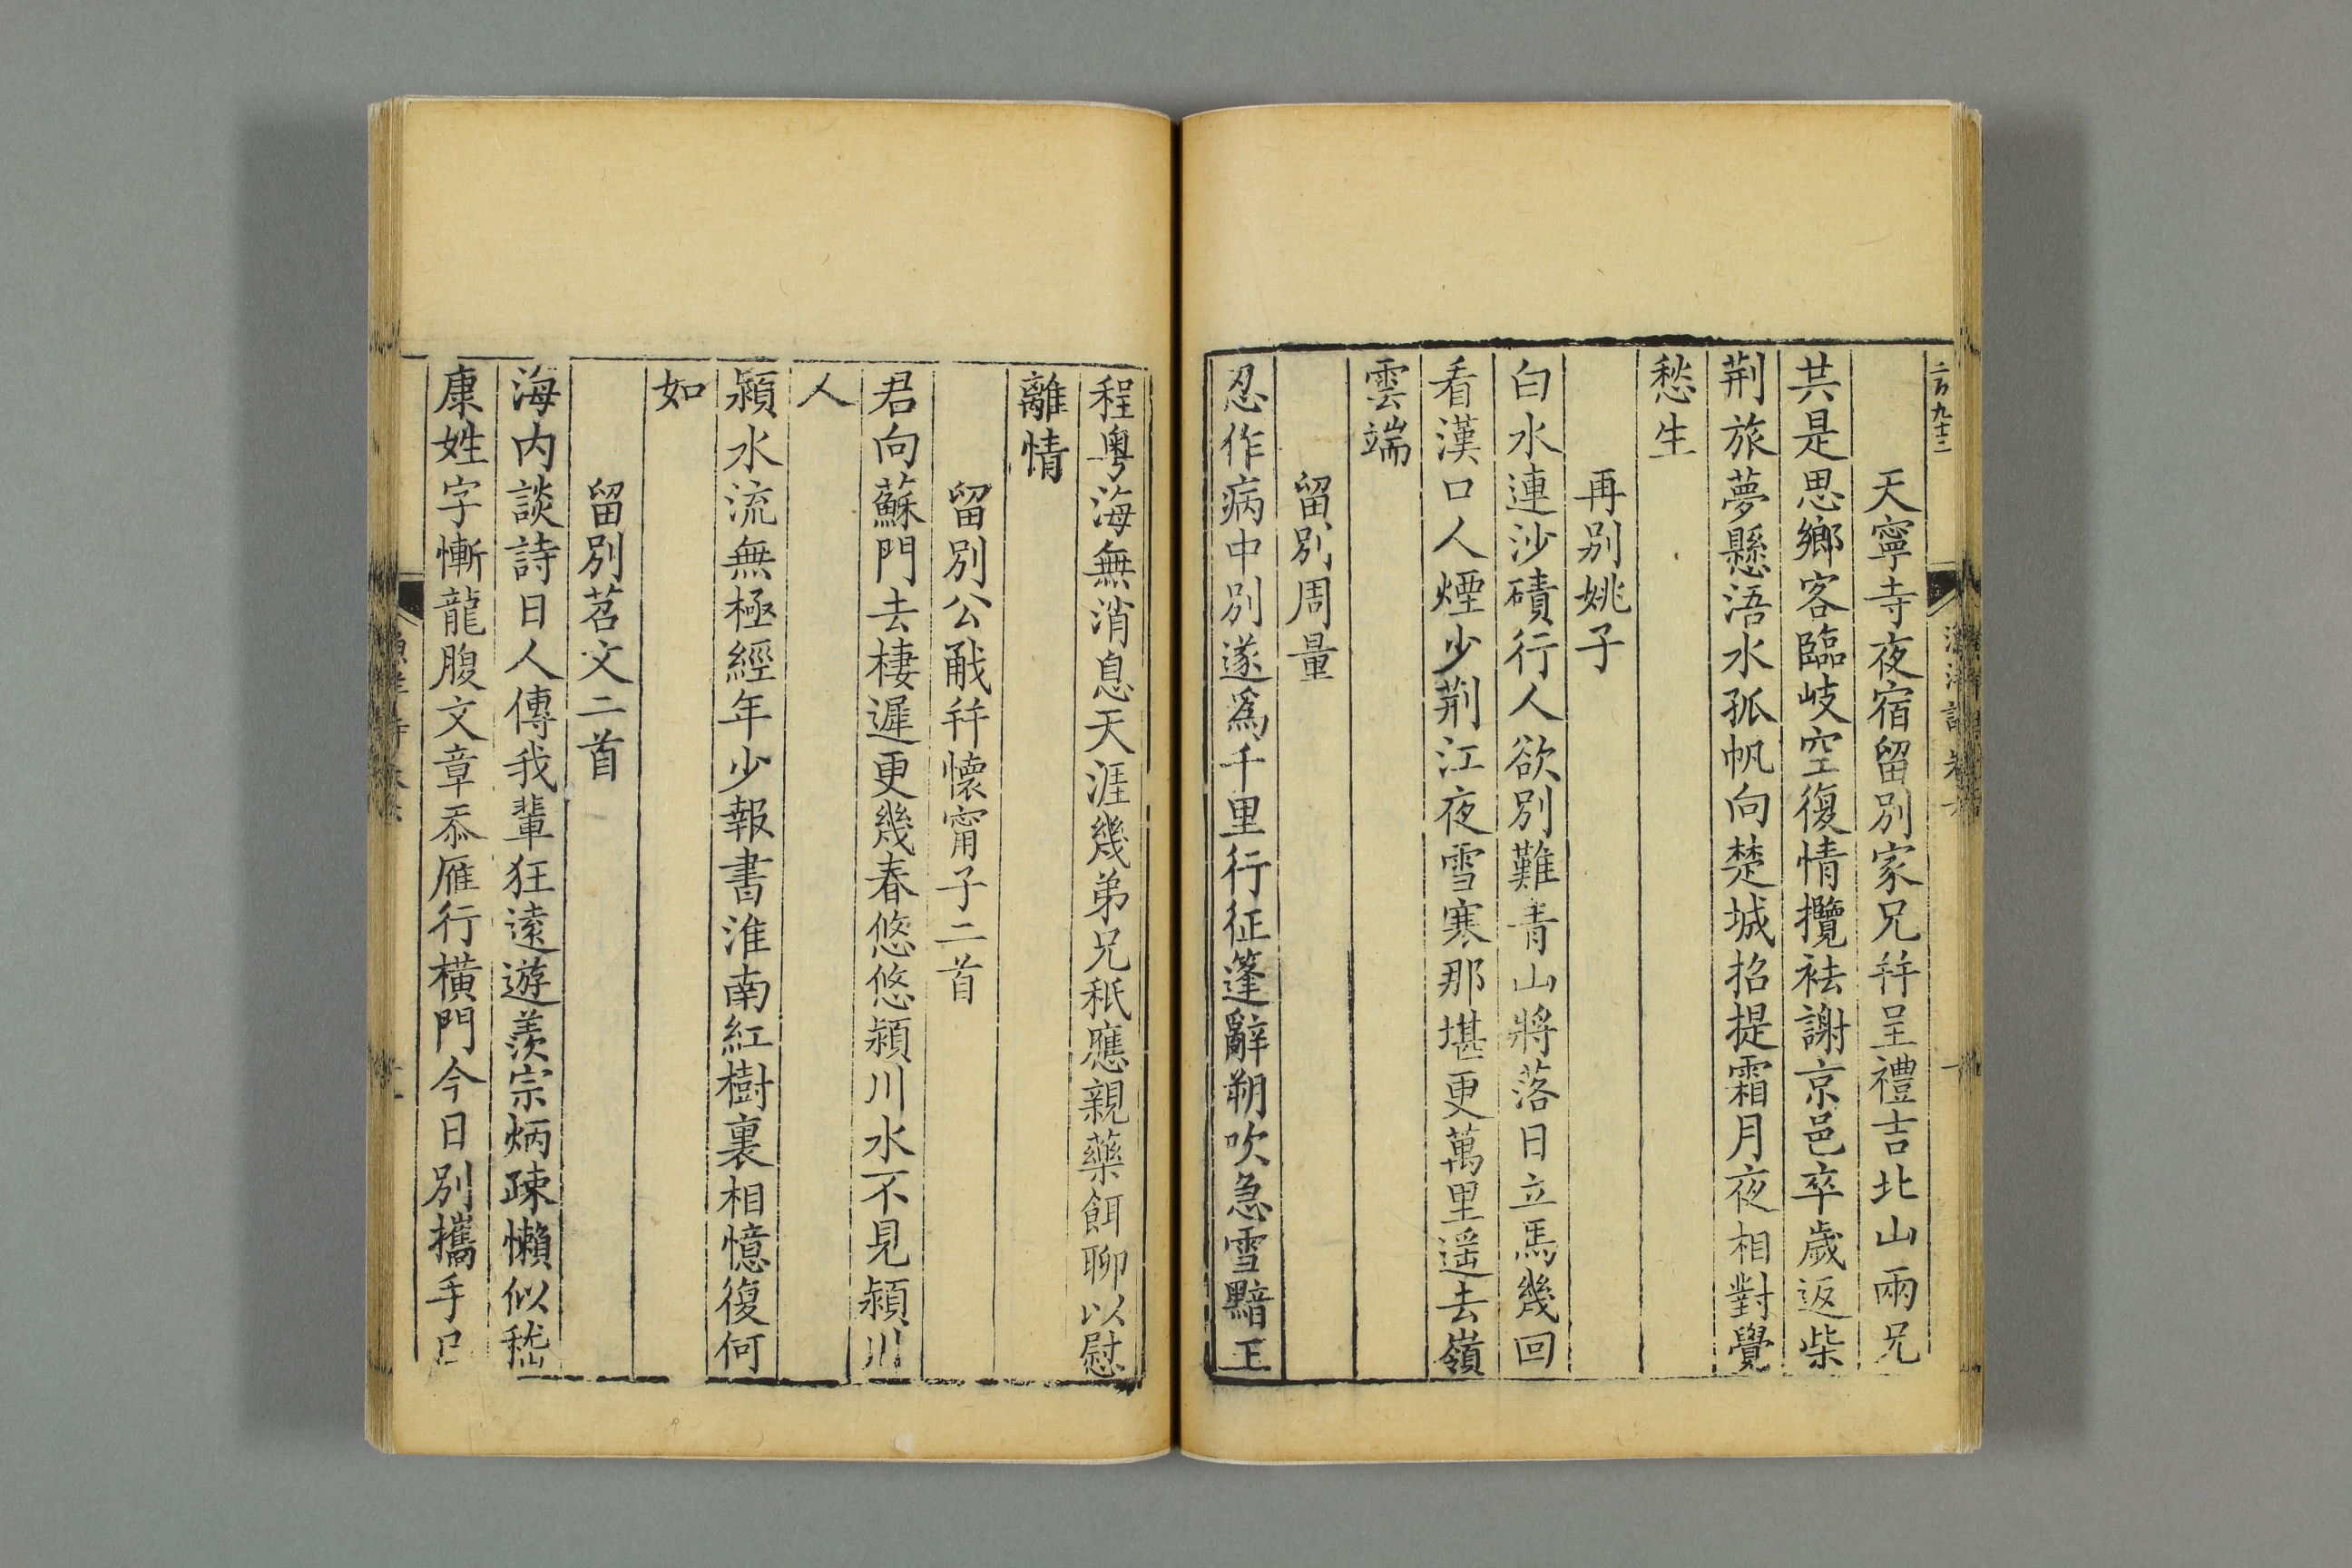 二百九十二
天寧寺夜宿留別家兄并呈禮吉北山兩兄
共是思鄉客臨岐空復情攬袪謝京邑卒歲返柴
荆旅夢懸浯水孤帆向楚城招提霜月夜相對覺
愁生
再别姚子
白水連沙磧行人欲別難青山將落日立馬幾回
看漢口人煙少荆江夜雪寒那堪更萬里遥去嶺
雲端
留別周量
忍作病中別遂爲千里行征篷辭朔吹急雪黯王
程粤海無消息天涯幾弟兄秖應親藥餌聊以慰
離情
留別公㦷并懷甯子二首
君向蘇門去棲遲更幾春悠悠潁川水不見潁川
人
潁水流無極經年少報書淮南紅樹裏相憶復何
如
留別苕文二首
海内談詩日人傳我輩狂逺遊羨宗炳疎懶似嵇
康姓字慚龍腹文章忝雁行橫門今日別攜手